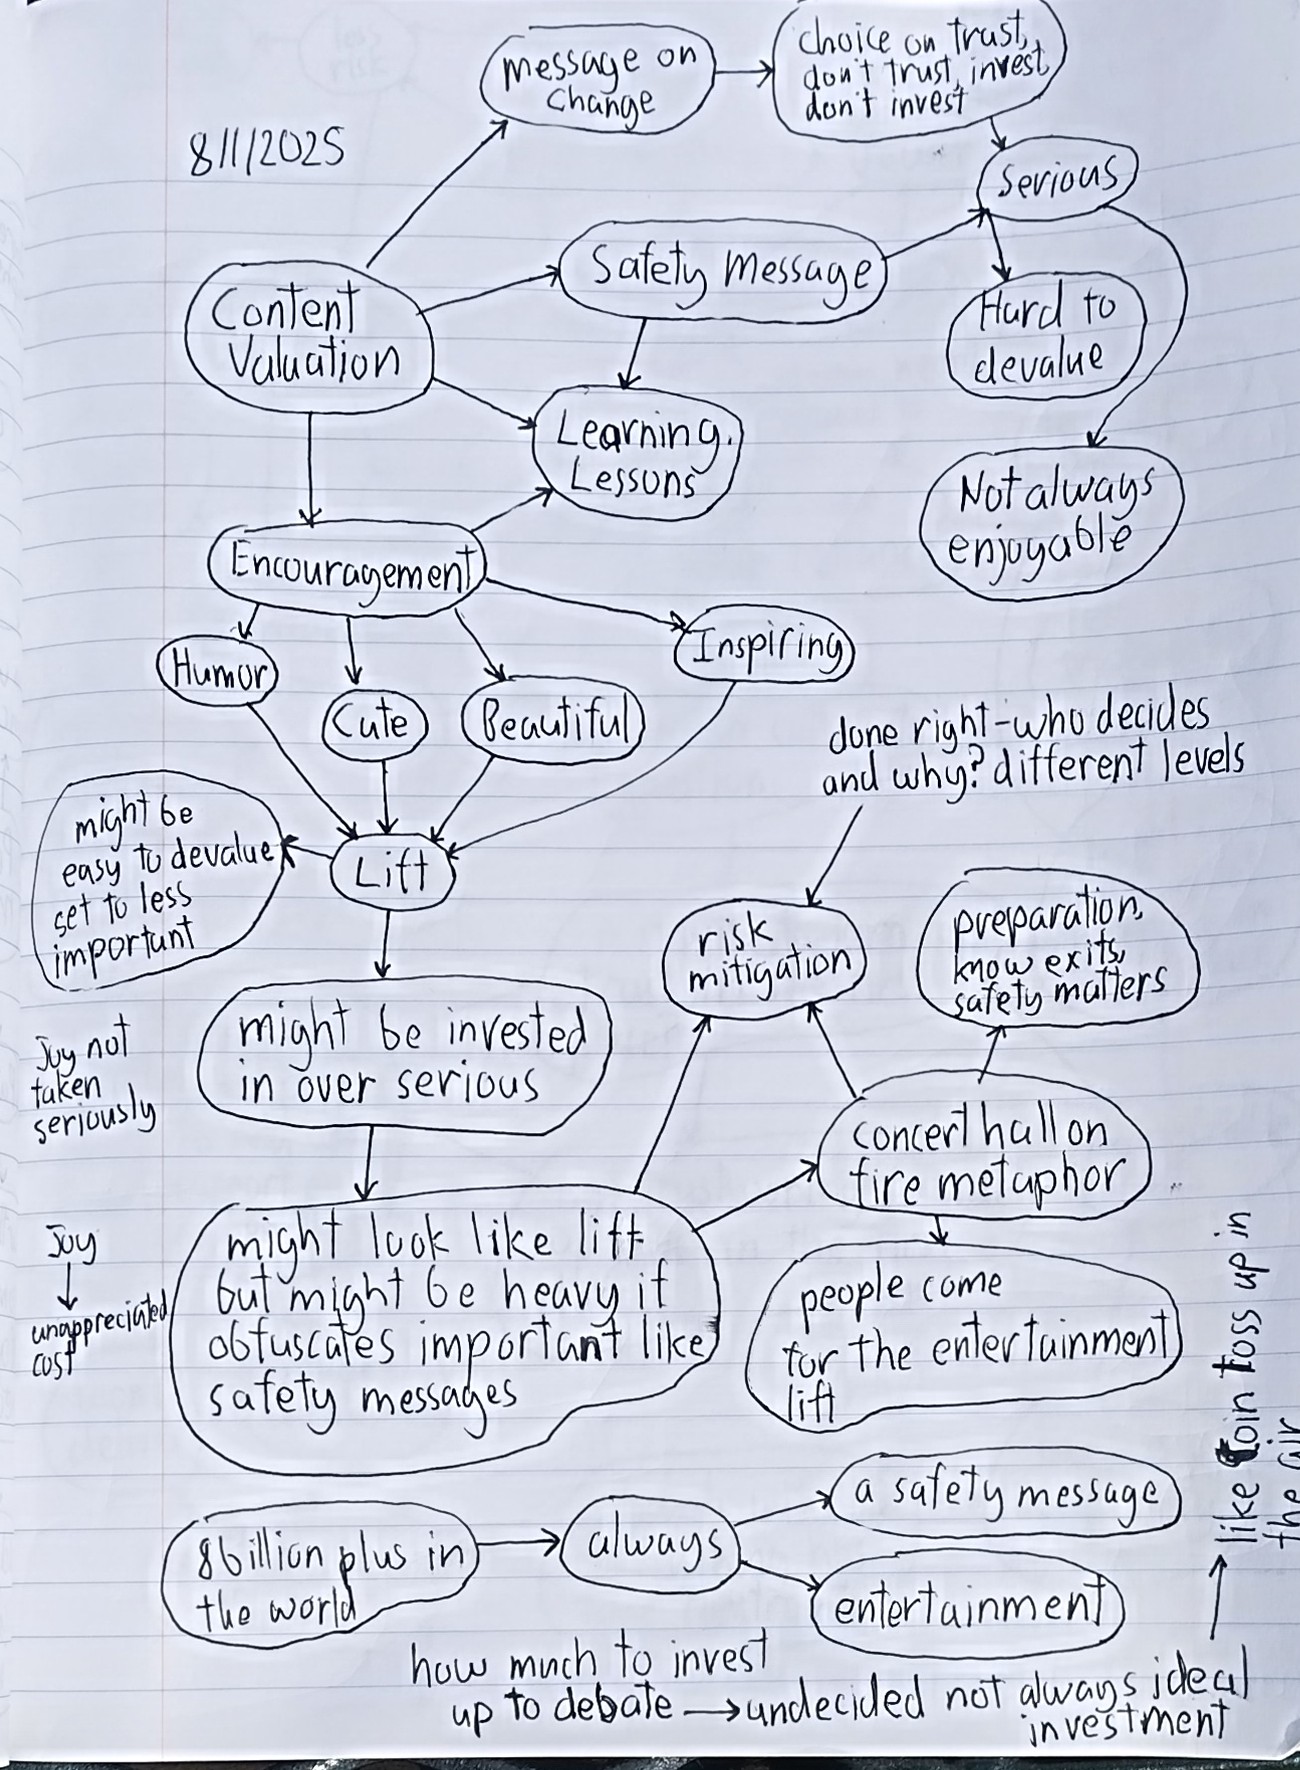 message on
change
choice on trust,
don't trust, invest,
don't invest
8/1/2025
Serious
Safety Message
Content
Valuation
Hard to
devalue
Learning
Lessons
Not always
enjoyable
Encouragement
Humor
Cute
Beautiful
Inspiring
done right-who decides
and why? different levels
might be
easy to devalue
set to less
important
Lift
risk
mitigation
preparation,
know exits,
safety matters
might be invested
in over serious
Joy not
taken
seriously
concert hall on
fire metaphor
might look like lift
but might be heavy if
obfuscates important like
safety messages
Joy
unappreciated
cost
people come
for the entertainment
lift
8 billion plus in
the world
always
a safety message
entertainment
how much to invest
up to debate → undecided not always ideal
investment
like coin toss up in
the air